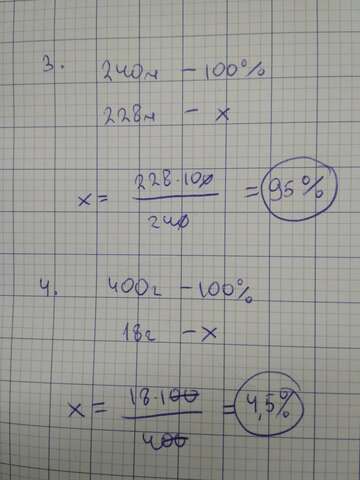 3. 240м - 100%
228м - x
x = 228·100 / 240 = 95%
4. 400г - 100%
18г - x
x = 18·100 / 400 = 4,5%